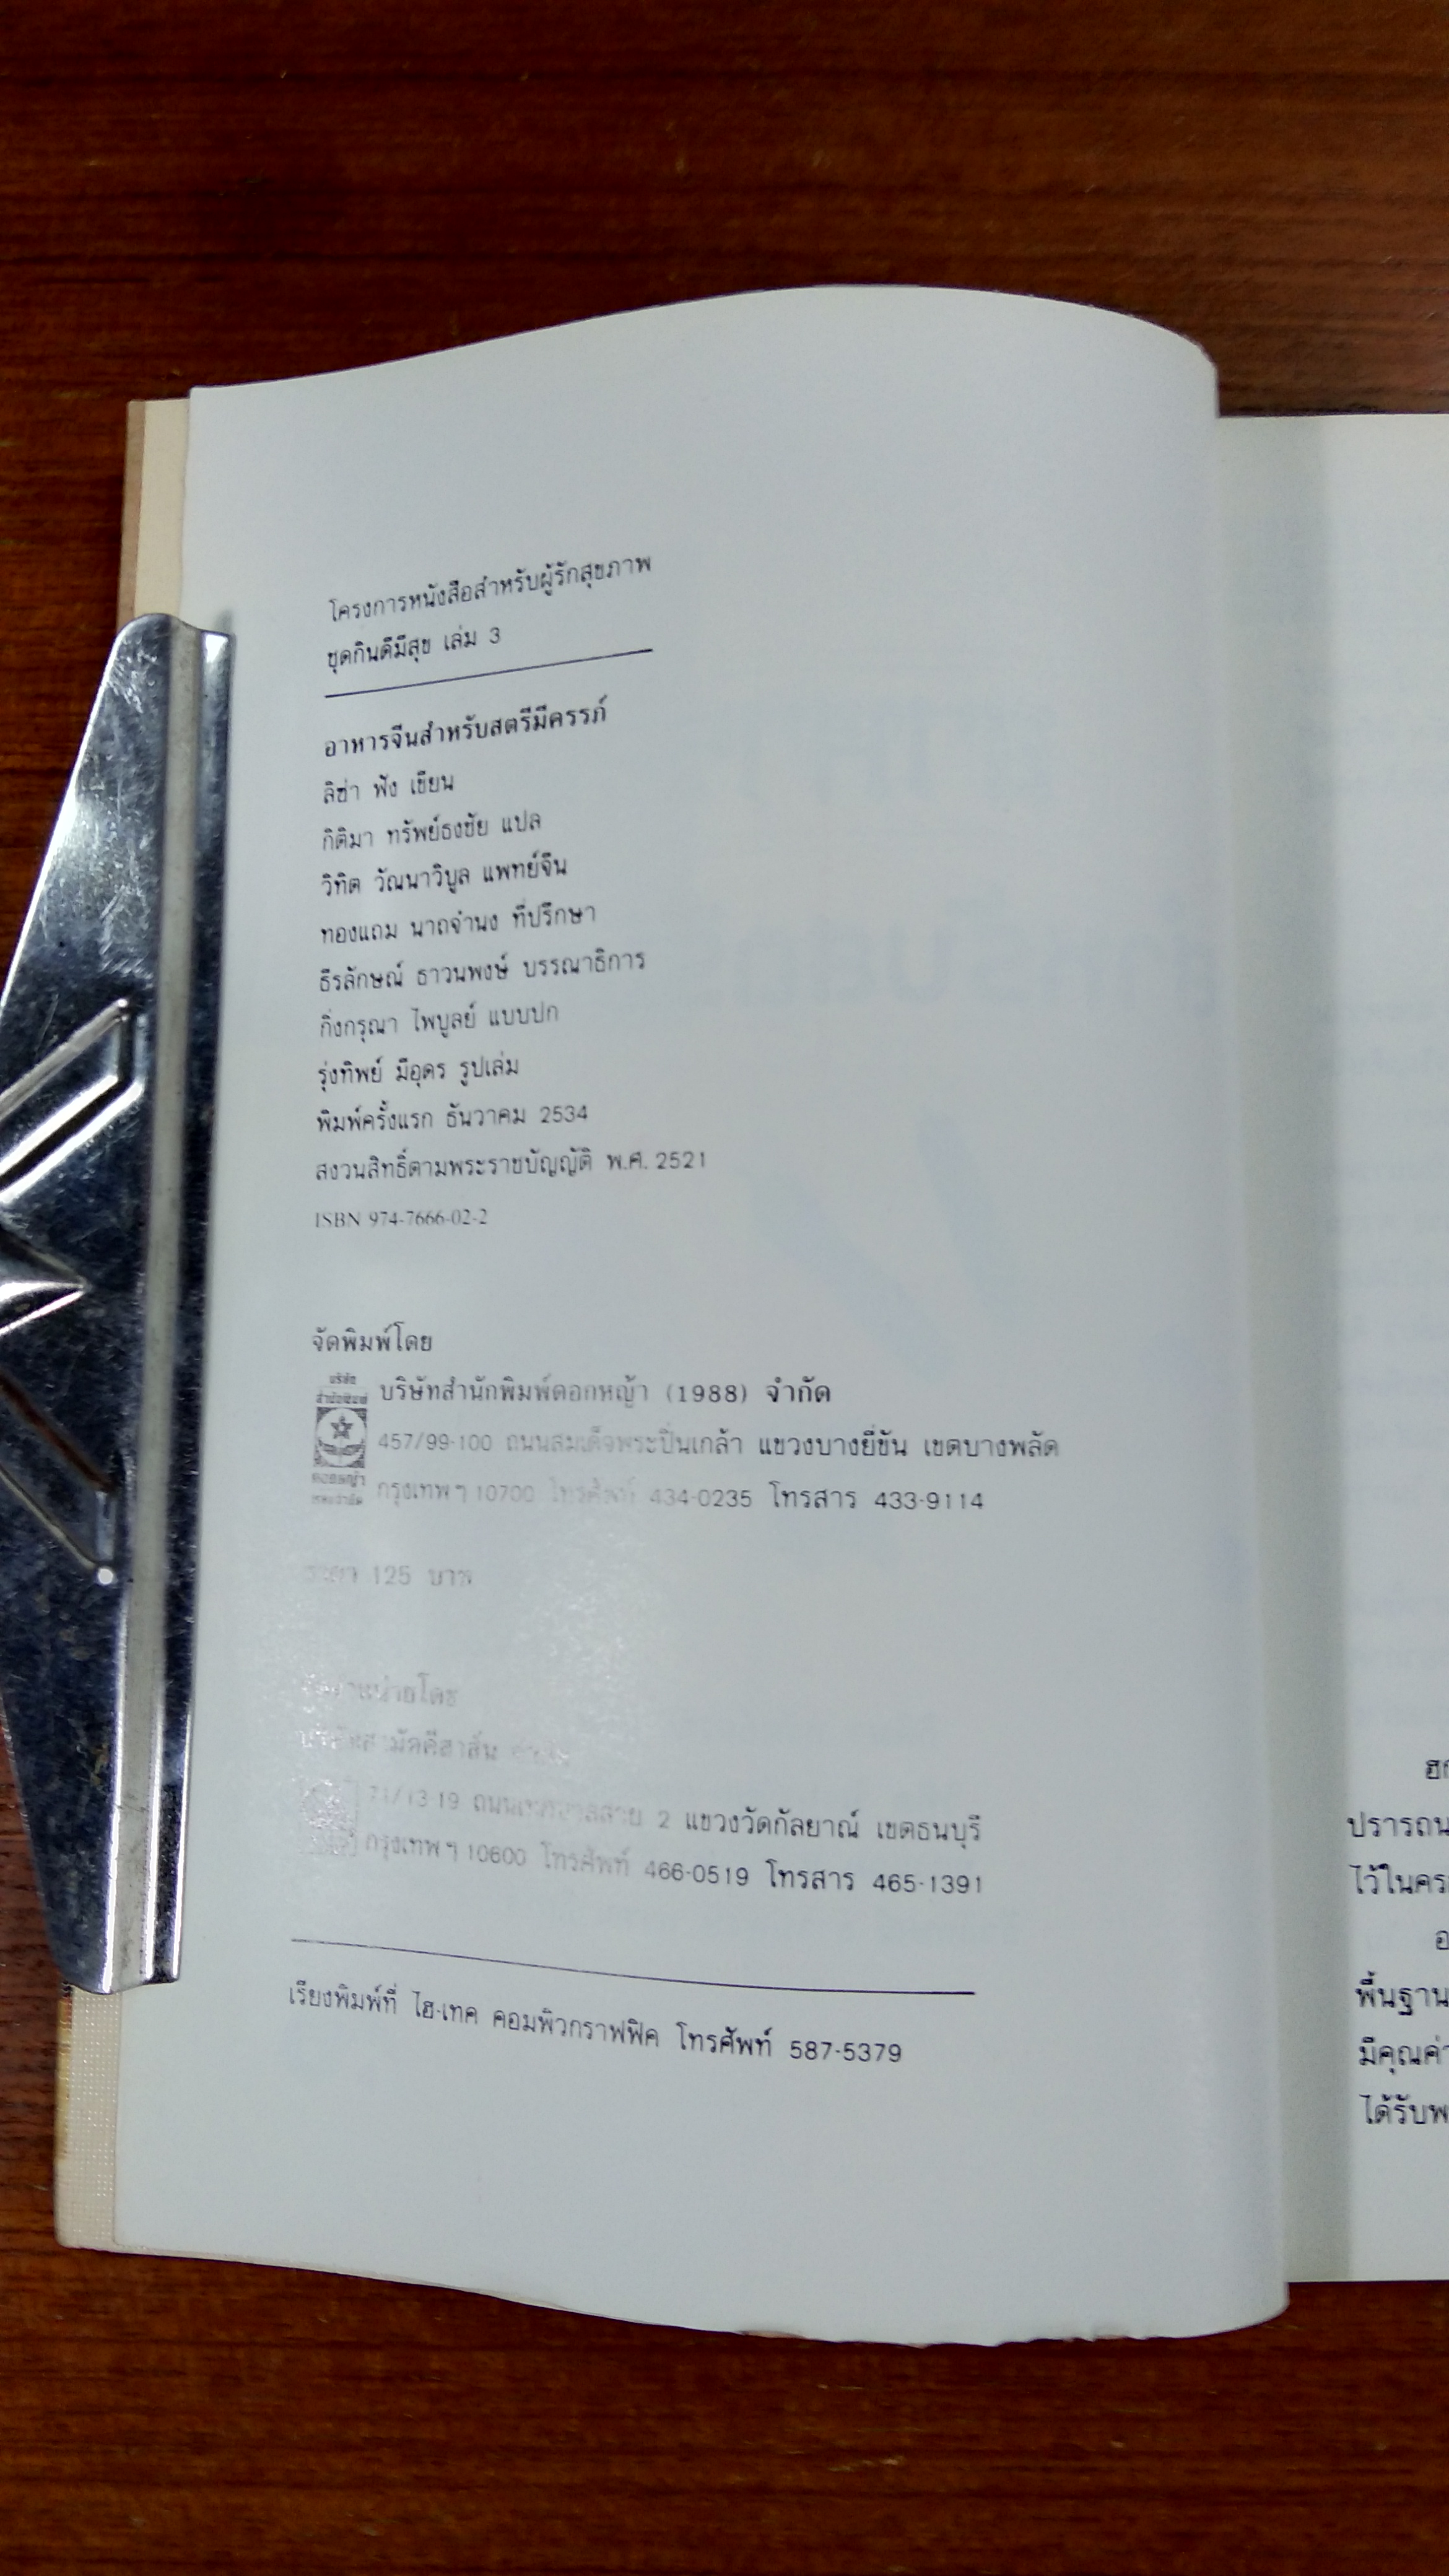 โครงการหนังสือสำหรับผู้รักสุขภาพ
ชุดกินดีมีสุข เล่ม 3
อาหารจีนสำหรับสตรีมีครรภ์
ลิซ่า ฟัง เขียน
กิติมา ทรัพย์ธงชัย แปล
วิทิต วัณนาวิบูล แพทย์จีน
ทองแถม นาถจำนง ที่ปรึกษา
ธีรลักษณ์ ธาวนพงษ์ บรรณาธิการ
กิ่งกรุณา ไพบูลย์ แบบปก
รุ่งทิพย์ มีอุดร รูปเล่ม
พิมพ์ครั้งแรก ธันวาคม 2534
สงวนสิทธิ์ตามพระราชบัญญัติ พ.ศ. 2521
ISBN 974-7666-02-2
จัดพิมพ์โดย
บริษัท
สำนักพิมพ์
ดอกหญ้า
บริษัทสำนักพิมพ์ดอกหญ้า (1988) จำกัด
457/99-100 ถนนสมเด็จพระปิ่นเกล้า แขวงบางยี่ขัน เขตบางพลัด
กรุงเทพฯ 10700 โทรศัพท์ 434-0235 โทรสาร 433-9114
ราคา 125 บาท
จัดจำหน่ายโดย
บริษัทสามัคคีสาส์น จำกัด
71/13-19 ถนนเทศบาลสาย 2 แขวงวัดกัลยาณ์ เขตธนบุรี
กรุงเทพฯ 10600 โทรศัพท์ 466-0519 โทรสาร 465-1391
เรียงพิมพ์ที่ ไฮ-เทค คอมพิวกราฟฟิค โทรศัพท์ 587-5379
ไว้ในคร
พื้นฐาน
มีคุณค่า
ได้รับพ